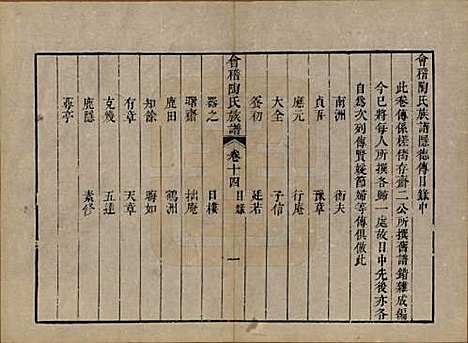 會稽陶氏族譜隱德傳目錄中
此卷傳係槎衙存齋二公所撰舊譜錯雜成編
今已將每人所撰各歸一處故目中先後亦各
自爲次列傳賢媛節婦等傳俱倣此
南洲 衛夫
貞吾 豫章
應元 行庵
大全 子信
養初 廷若
會稽陶氏族譜 卷十四 目錄 一
器之 日樓
曙齋 拙庵
鹿田 鶴洲
知徐 聯如
有章 天章
克幾 五達
鹿隱 素修
尊亭